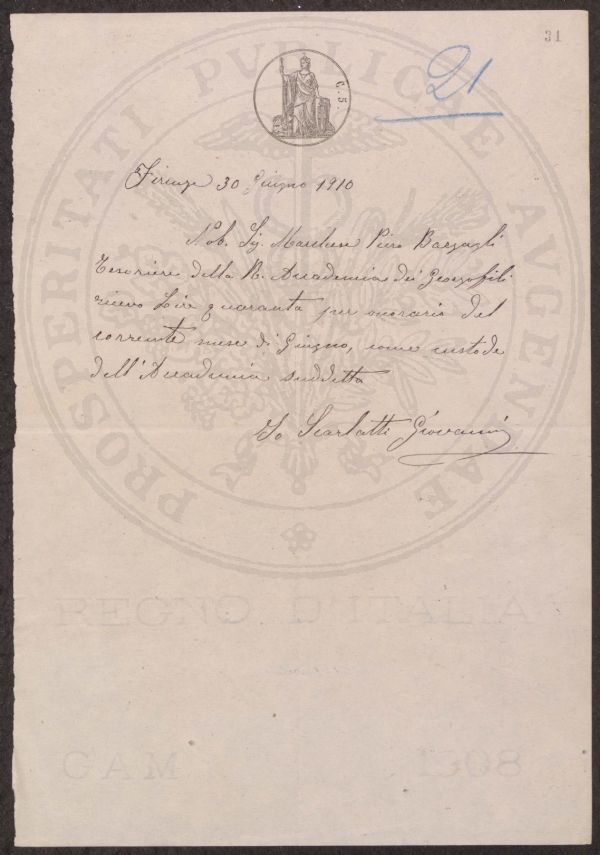 31
21
C. 5.
PROSPERITATI PVBLICAE AVGENDAE
Firenze 30 Giugno 1910
Nob. Sig. Marchese Piero Bargagli
Tesoriere della R. Accademia dei Georgofili
ricevo Lire quaranta per onorario del
corrente mese di Giugno, come custode
dell'Accademia suddetta
Io Scarlatti Giovanni
REGNO D'ITALIA
GAM 1908